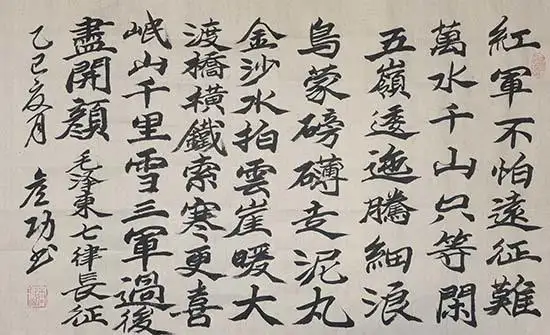 紅軍不怕遠征難
萬水千山只等閑
五嶺逶迤騰細浪
烏蒙磅礴走泥丸
金沙水拍雲崖暖大
渡橋橫鐵索寒更喜
岷山千里雪三軍過後
盡開顏 毛澤東七律長征
乙巳夏月 功书